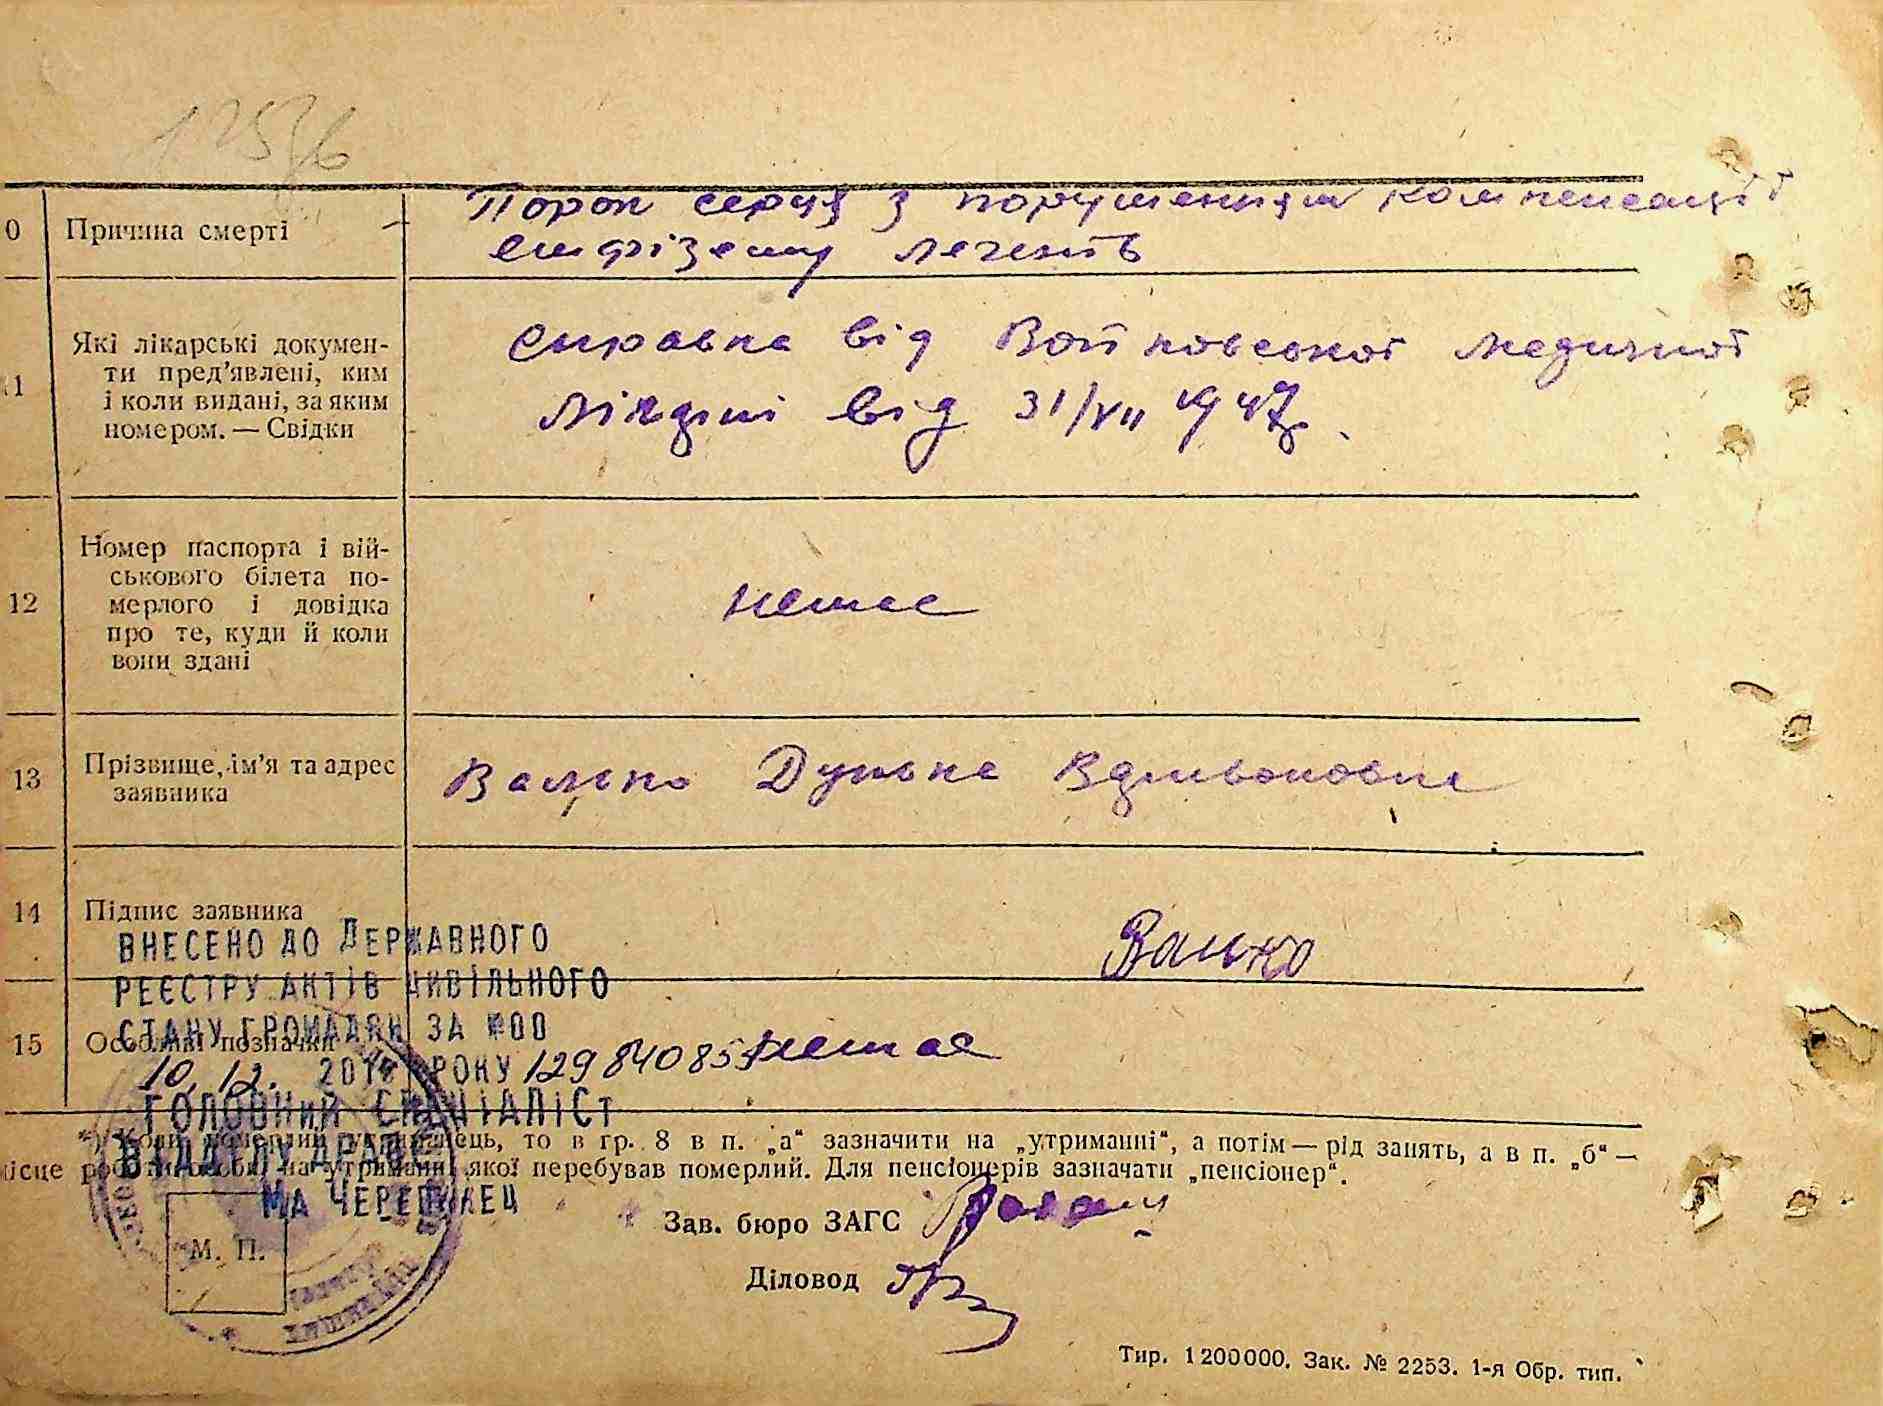 12576
0 Причина смерті - Порок серця з порушенням компенсації
емфізему легенів
11 Які лікарські докумен-
ти пред'явлені, ким
і коли видані, за яким
номером. — Свідки
справка від Войковської медичної
лікарні від 31/VII 1947р.
12 Номер паспорта і вій-
ськового білета по-
мерлого і довідка
про те, куди й коли
вони здані
немає
13 Прізвище, ім'я та адрес
заявника
Валько Дунька
14 Підпис заявника
Валько
ВНЕСЕНО ДО ДЕРЖАВНОГО
РЕЄСТРУ АКТІВ ЦИВІЛЬНОГО
СТАНУ ГРОМАДЯН ЗА №00
15 Особливі позначки немає
10.12. РОКУ
ГОЛОВНИЙ СПЕЦІАЛІСТ
ВІДДІЛУ ДРАЦС
*) Коли померлий утриманець, то в гр. 8 в п. „а“ зазначити на „утриманні“, а потім — рід занять, а в п. „б“ —
місце роботи особи, на утриманні якої перебував померлий. Для пенсіонерів зазначати „пенсіонер“.
Зав. бюро ЗАГС
М. П.
Діловод
Тир. 1200000. Зак. № 2253. 1-я Обр. тип.